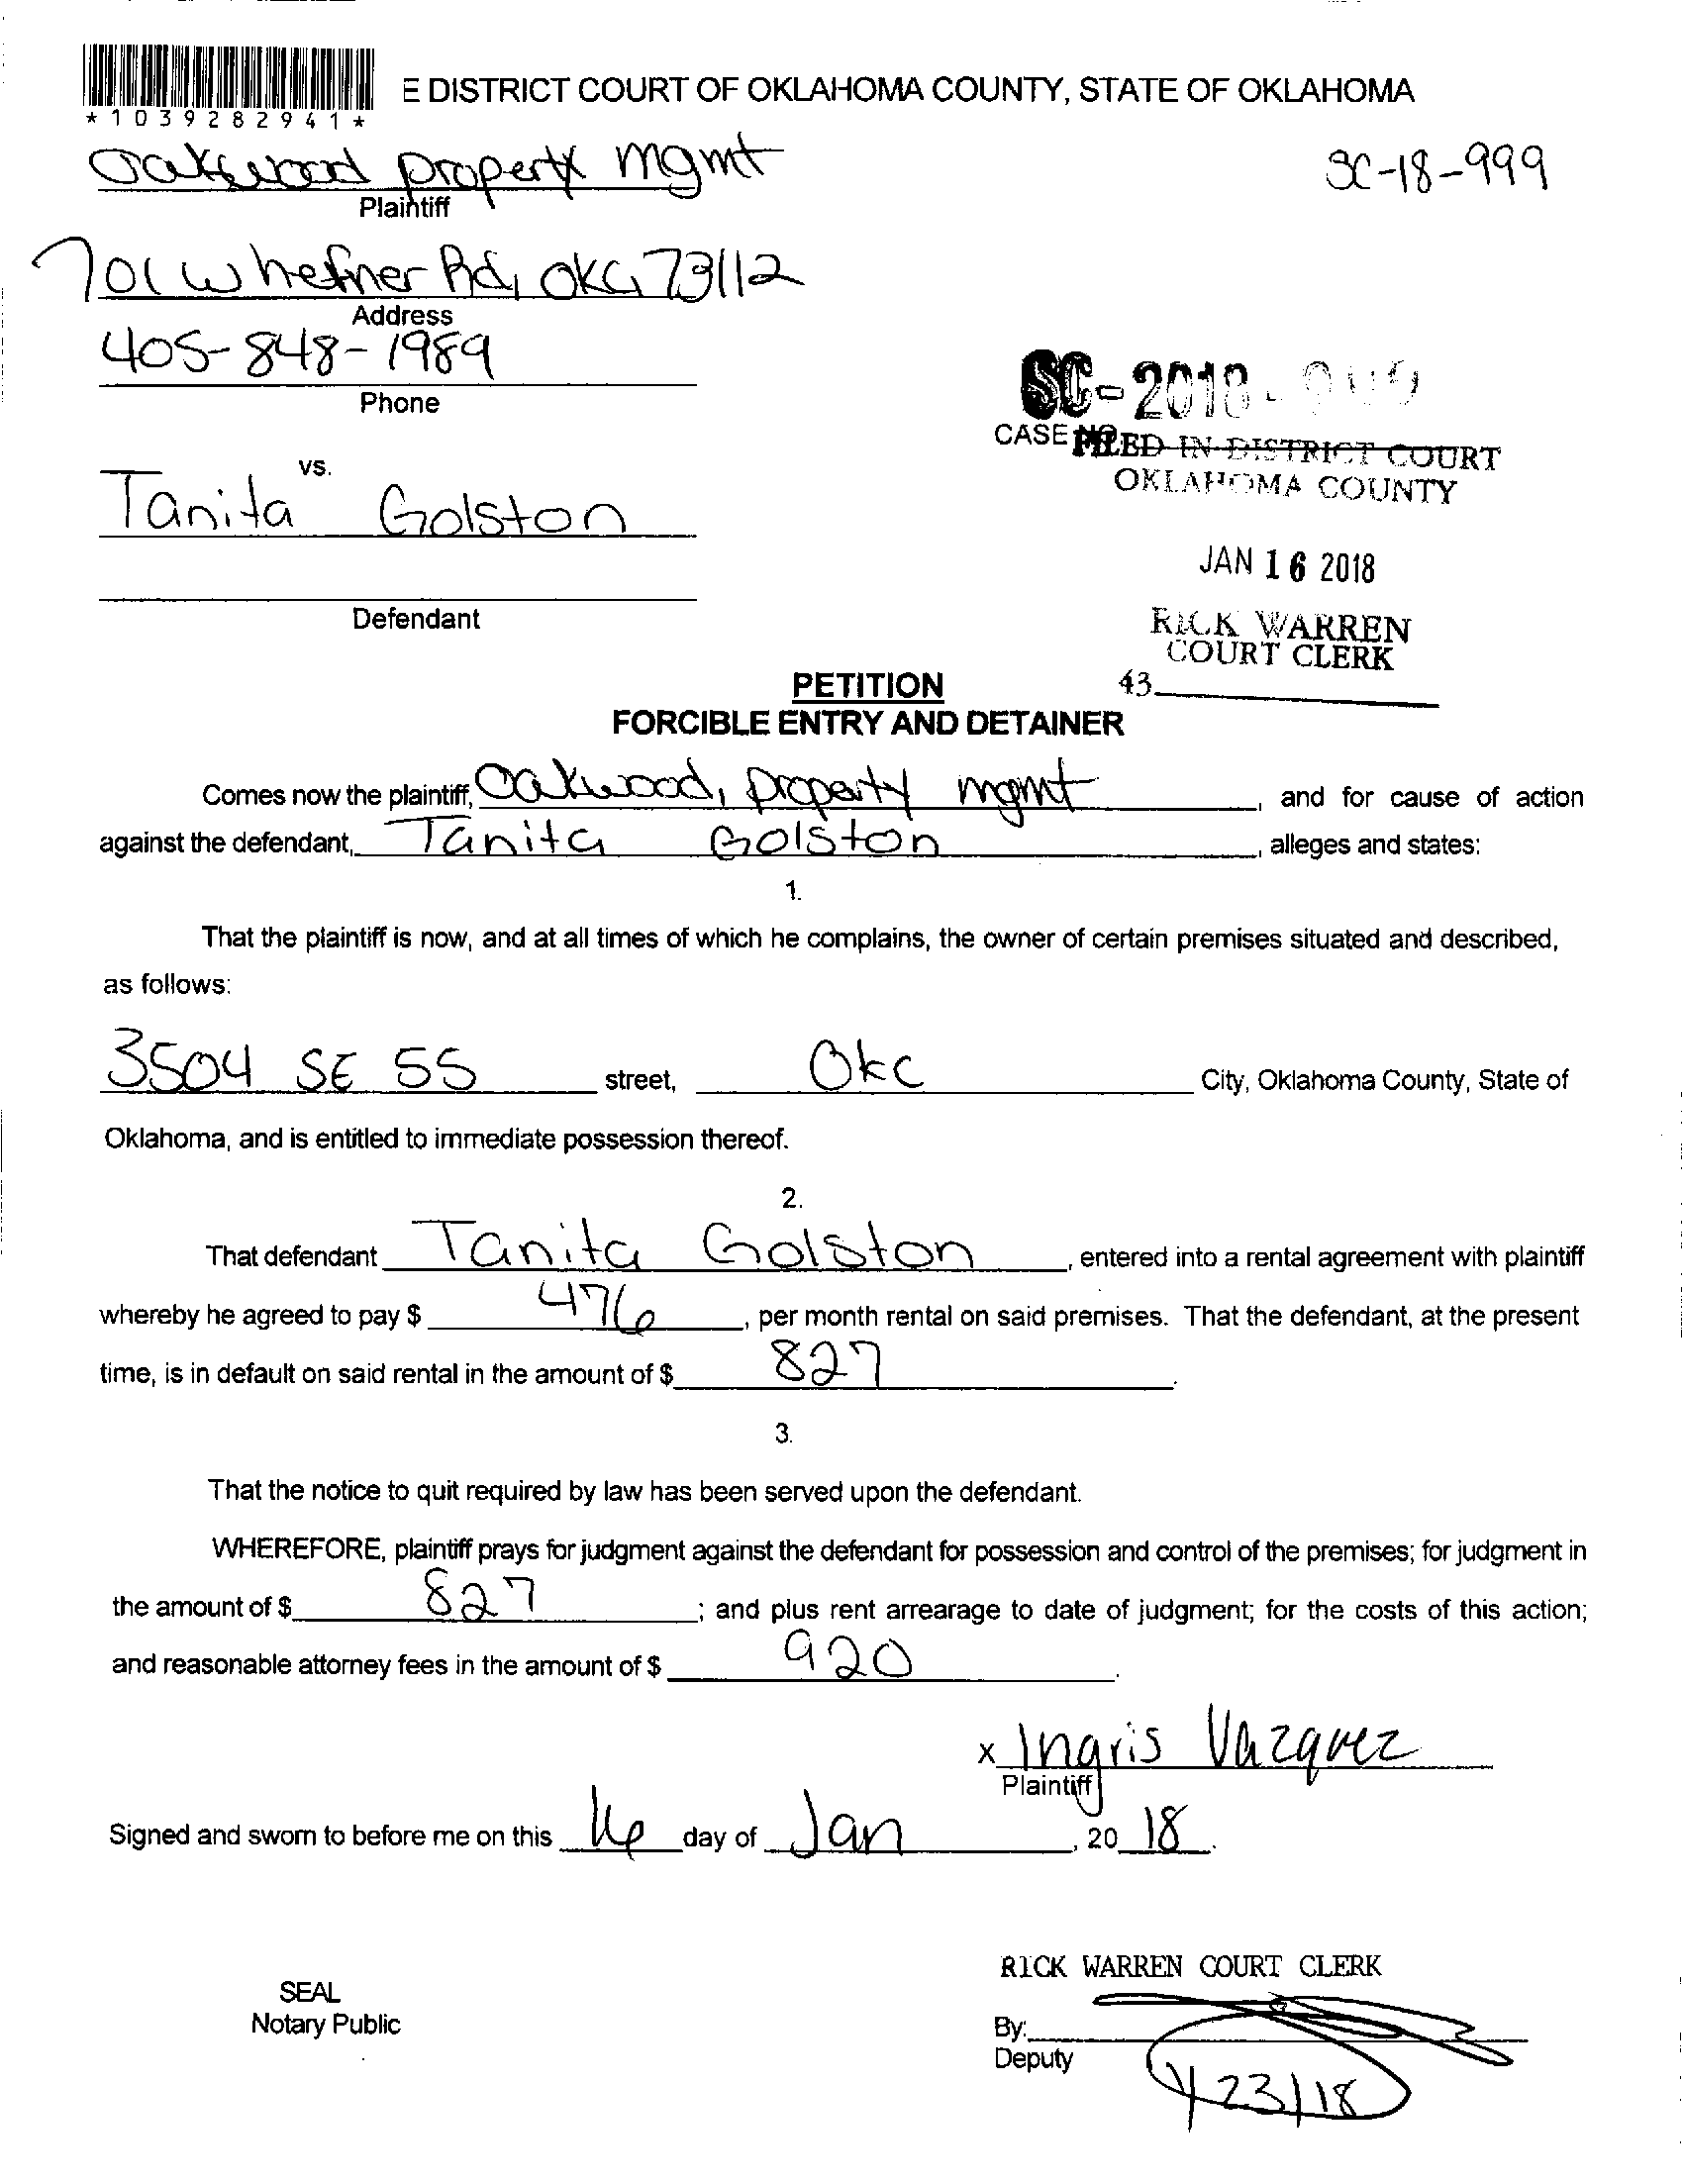 *1039282941*
E DISTRICT COURT OF OKLAHOMA COUNTY, STATE OF OKLAHOMA
Oakwood property mgmt
SC-18-999
Plaintiff
701 W hefner Rd, OKC, 73112
Address
405-848-1989
Phone
SC-2018-999
CASE NO.
FILED IN DISTRICT COURT
OKLAHOMA COUNTY
vs.
Tanita Golston
JAN 16 2018
Defendant
RICK WARREN
COURT CLERK
43
PETITION
FORCIBLE ENTRY AND DETAINER
Comes now the plaintiff, Oakwood, property mgmt, and for cause of action
against the defendant, Tanita Golston, alleges and states:
1.
That the plaintiff is now, and at all times of which he complains, the owner of certain premises situated and described,
as follows:
3504 SE 55 street, Okc City, Oklahoma County, State of
Oklahoma, and is entitled to immediate possession thereof.
2.
That defendant Tanita Golston, entered into a rental agreement with plaintiff
whereby he agreed to pay $ 476, per month rental on said premises. That the defendant, at the present
time, is in default on said rental in the amount of $ 827.
3.
That the notice to quit required by law has been served upon the defendant.
WHEREFORE, plaintiff prays for judgment against the defendant for possession and control of the premises; for judgment in
the amount of $ 827; and plus rent arrearage to date of judgment; for the costs of this action;
and reasonable attorney fees in the amount of $ 920.
x Ingris Vazquez
Plaintiff
Signed and sworn to before me on this 16 day of Jan, 20 18.
RICK WARREN COURT CLERK
SEAL
Notary Public
By:
Deputy
23/18